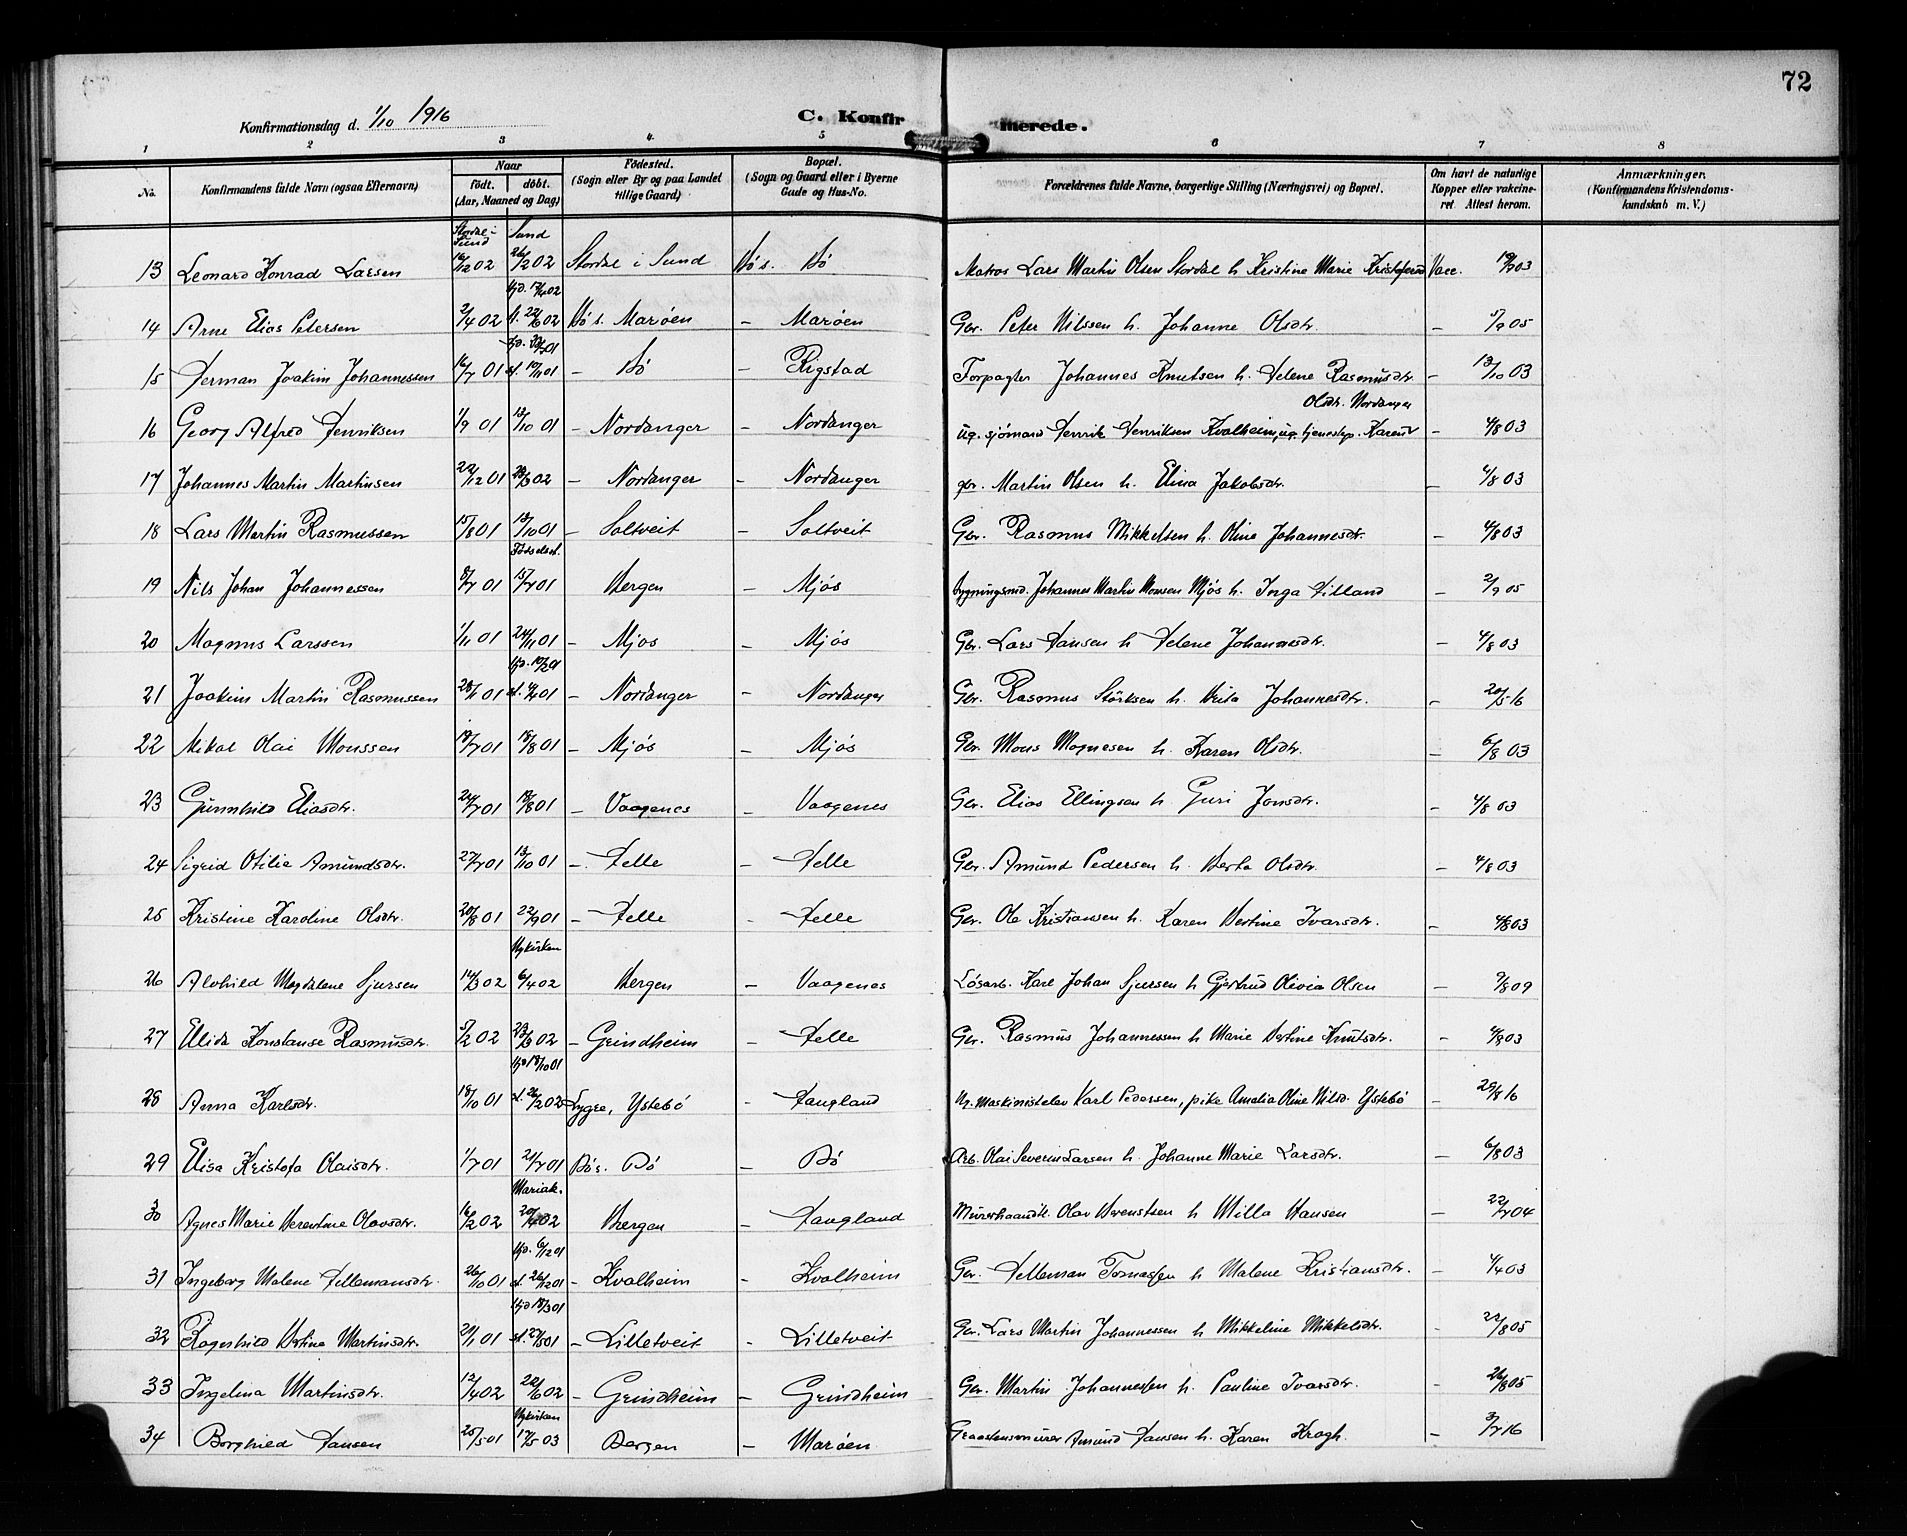 72
Konfirmationsdag d. 1/10 1916 C. Konfirmerede.
1 2 3 4 5 6 7 8
No. Konfirmandens fulde Navn (ogsaa Efternavn) Naar födt. döbt. (Aar, Maaned og Dag) Födested. (Sogn eller By og paa Landet tillige Gaard) Bopæl. (Sogn og Gaard eller i Byerne Gade og Hus-No. Forældrenes fulde Navne, borgerlige Stilling (Næringsvei) og Bopæl. Om havt de naturlige Kopper eller vakcineret. Attest herom. Anmærkninger. (Konfirmandens Kristendomskundskab m. V.)
Stordal i Sund Sund
13 Leonard Konrad Larsen 16/12 02 26/2 02 Stordal i Sund Bø s. Bø Matros Lars Martin Olsen Stordal h. Kristine Marie Vacc.
14 Arne Elias Petersen 2/4 02 22/6 02 Bø s. Marøen - Marøen Gbr. Peter Nilssen h. Johanne Olsdtr. - 5/9 05
15 Herman Joakim Johannessen 16/7 01 - Bø - Rigstad Forpagter Johannes Knutsen h. Helene Rasmusdtr. - 13/10 03
Olsdtr. Nordanger
16 Georg Alfred Henriksen 1/9 01 13/10 01 - Nordanger - Nordanger ug. sjömand Henrik Henriksen Kvalheim, ug. tjenestep. Karen - 4/8 03
17 Johannes Martin Martinsen 22/12 01 23/3 02 - Nordanger - Nordanger gbr. Martin Olsen h. Elina Jakobsdtr. - 4/8 03
18 Lars Martin Rasmussen 15/8 01 13/10 01 - Soltveit - Soltveit Gbr. Rasmus Mikkelsen h. Oline Johannesdtr. - 4/8 03
19 Nils Johan Johannessen 8/7 01 15/7 01 Bergen - Mjøs Johannes Martin Monsen Mjøs h. Inga - 2/9 05
20 Magnus Larssen 1/11 01 24/11 01 - Mjøs - Mjøs Gbr. Lars Hansen h. Helene Johannesdtr. - 4/8 03
21 Joakim Martin Rasmussen - Nordanger - Nordanger Gbr. Rasmus Störksen h. Brita Johannesdtr. - 20/5 16
22 Mikal Olai Monssen 19/7 01 18/8 01 - Mjøs - Mjøs Gbr. Mons Magnesen h. Karen Olsdtr. - 6/8 03
23 Gunnhild Eliasdtr. 24/7 01 18/8 01 - Vaagenes - Vaagenes Gbr. Elias Ellingsen h Guri Jonsdtr. - 4/8 03
24 Sigrid Otilie Amundsdtr. 27/7 01 13/10 01 - Helle - Helle Gbr. Amund Pedersen h. Berta Olsdtr. - 4/8 03
25 Kristine Karoline Olsdtr. 20/8 01 22/9 01 - Helle - Helle Gbr. Ole Kristiansen h. Karen Bertine Ivarsdtr. - 4/8 03
Nykirken
26 Alvhild Magdalene Sjursen 14/3 02 6/4 02 Bergen - Vaagenes Løsarb. Karl Johan Sjursen h Gjertrud Olivia Olsen - 9/8 09
27 Elida Konstanse Rasmusdtr. 5/2 02 23/3 02 - Grindheim - Helle Gbr. Rasmus Johannessen h Marie Bertine Knutsdtr. - 4/8 03
hjd 18/10 01
28 Anna Karlsdtr. 18/10 01 st. 26/2 02 Lygre, Ystebö - Haugland Ug. Maskinistelev Karl Pedersen, pike Amalia Oline Nilsd. Ystebö - 29/8 16
29 Elisa Kristofa Olaisdtr. 1/7 01 21/7 01 Bö s. Bö - Bö Arb. Olai Severin Larsen h. Johanne Marie Larsdtr. - 6/8 03
Mariak.
30 Agnes Marie Berentine Olavsdtr. 16/2 02 20/4 02 Bergen - Haugland Murerhaandtl. Olav Berentsen h Milla Hansen - 22/7 04
hjd. 6/12 01
31 Ingeborg Malene Tellemansdtr. 26/10 01 st. 26/12 01 - Kvalheim - Kvalheim Gbr. Telleman Tomassen h Malene Kristiansdtr. - 4/4 03
hjd 18/3 01
32 Ragnhild Bertine Martinsdtr. 21/1 01 st. 27/5 01 - Lilletveit - Lilletveit Gbr. Lars Martin Johannessen h Mikkeline Mikkelsdtr. - 22/8 05
33 Ingelina Martinsdtr. 12/4 02 22/6 02 - Grindheim - Grindheim Gbr. Martin Johannessen h. Pauline Ivarsdtr. - 26/8 05
Nykirken
34 Borghild Hansen 25/5 01 17/5 03 Bergen - Marøen Graastensmurer Amund Hansen h. Karen Krogh. - 3/7 16